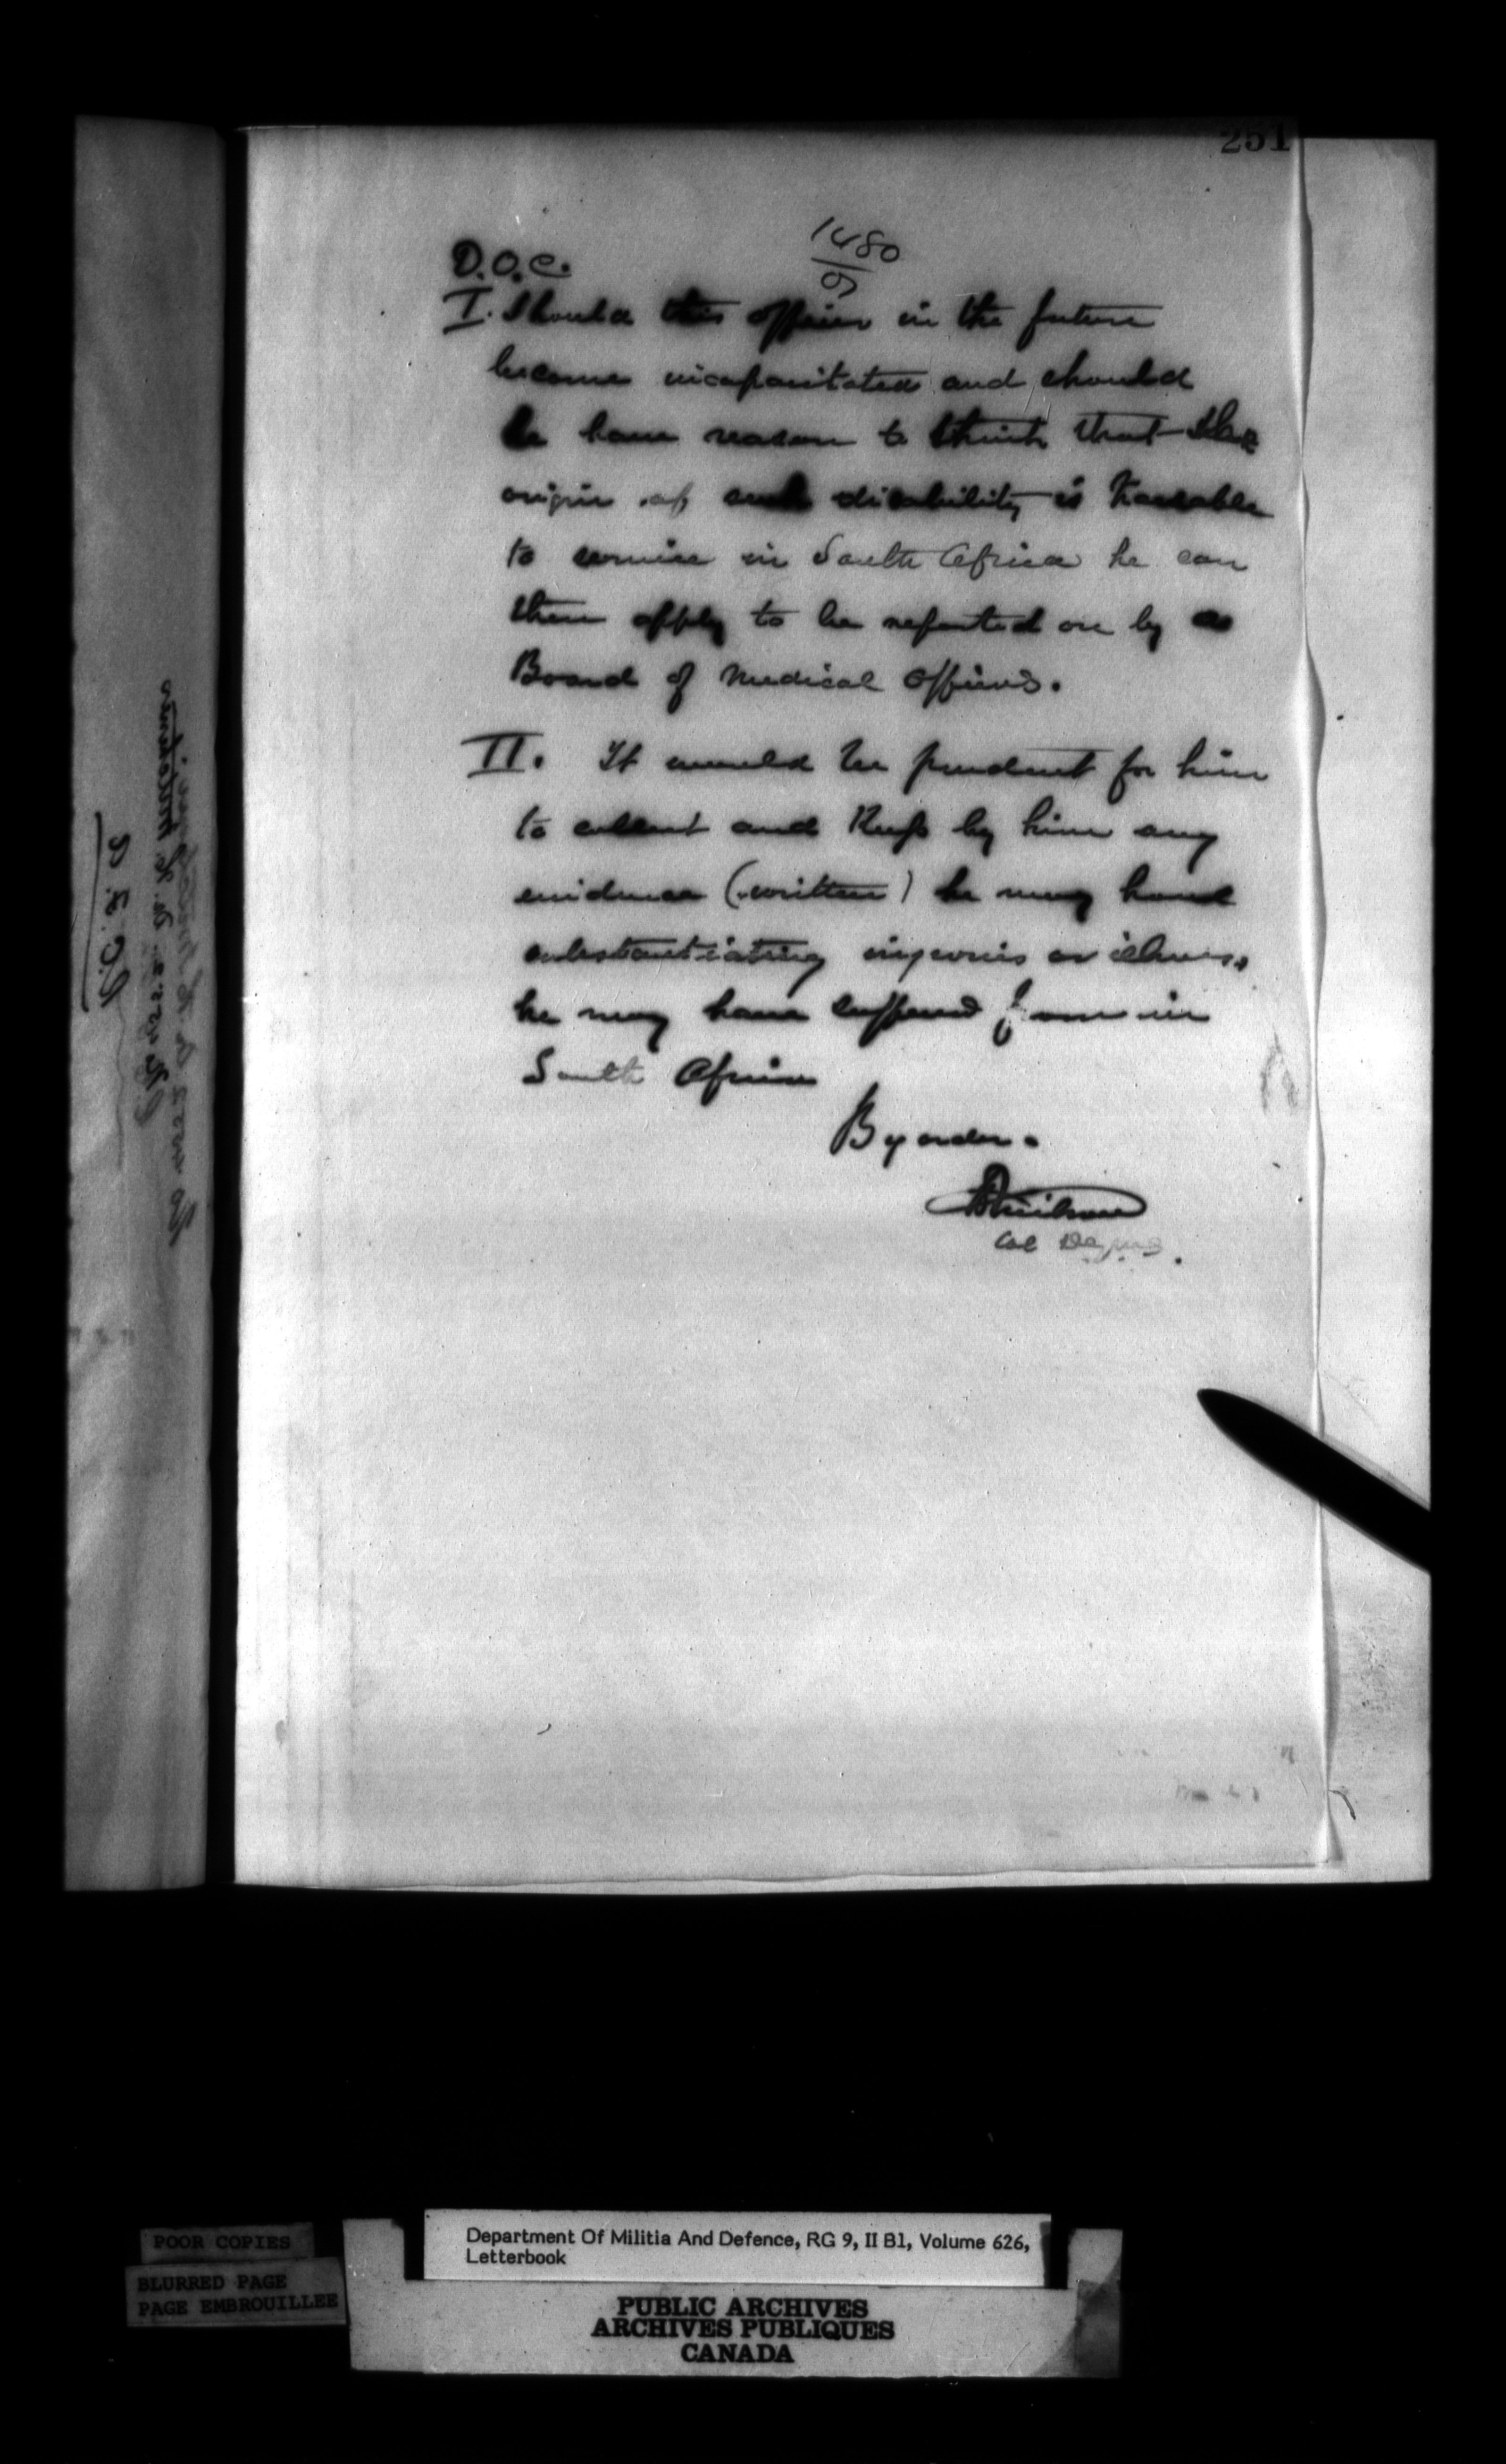 251
1480
D.O.C.
I. Should this officer in the future
become incapacitated and should
he have reason to think that the
origin of such disability is traceable
to service in South Africa he can
then apply to be reported on by a
Board of Medical Officers.
II. It would be prudent for him
to collect and keep by him any
evidence (written) he may have
substantiating injuries or illness,
he may have suffered from in
South Africa
By order.
Col
POOR COPIES
BLURRED PAGE
PAGE EMBROUILLEE
Department Of Militia And Defence, RG 9, II B1, Volume 626,
Letterbook
PUBLIC ARCHIVES
ARCHIVES PUBLIQUES
CANADA